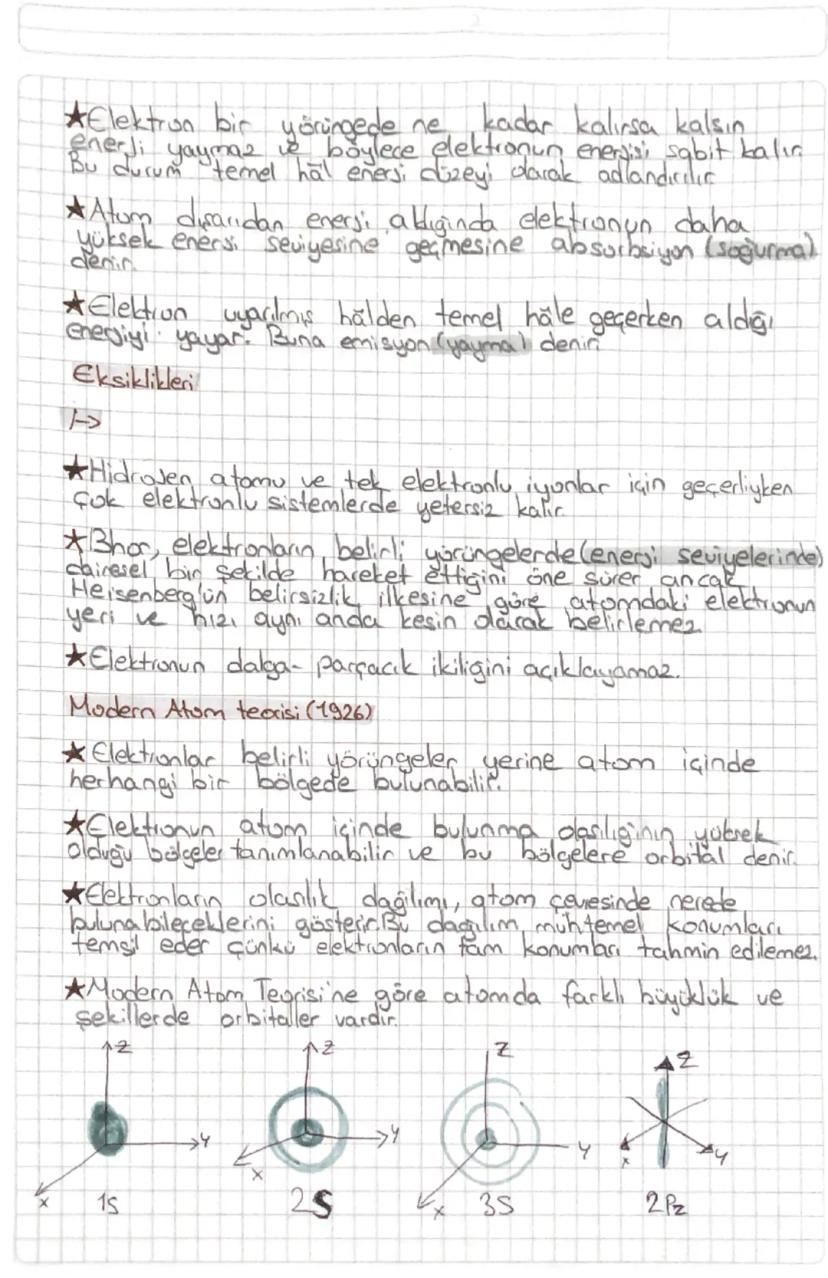 ★Elektron bir yörüngede ne kadar kalırsa kalsın
enerji yaymaz ve böylece elektronun enerjisi sabit kalır.
Bu durum temel hâl enerji düzeyi olarak adlandırılır
★Atom dışarıdan enerji aldığında elektronun daha
yüksek enerji seviyesine geçmesine absorbsiyon (soğurma)
denir.
★Elektron uyarılmış hâlden temel hâle geçerken aldığı
enerjiyi yayar. Buna emisyon (yayma) denir
Eksiklikleri
|->
★Hidrojen atomu ve tek elektronlu iyonlar için geçerliyken
çok elektronlu sistemlerde yetersiz kalır.
★Bhor, elektronların belirli yörüngelerde (enerji seviyelerinde)
dairesel bir şekilde hareket ettiğini öne sürer ancak
Heisenberg'ün belirsizlik ilkesine göre atomdaki elektronun
yeri ve hızı aynı anda kesin olarak belirlemez.
★Elektronun dalga- parçacık ikiliğini açıklayamaz.
Modern Atom teorisi (1926)
★Elektronlar belirli yörüngeler yerine atom içinde
herhangi bir bölgede bulunabilir.
★Elektronun atom içinde bulunma olasılığının yüksek
olduğu bölgeler tanımlanabilir ve bu bölgelere orbital denir.
★Elektronların olasılık dağılımı, atom çevresinde nerede
bulunabileceklerini gösterir. Bu dağılım, muhtemel konumları
temsil eder çünkü elektronların tam konumları tahmin edilemez.
★Modern Atom Teorisi'ne göre atomda farklı büyüklük ve
şekillerde orbitaller vardır.
Z Z Z Z
Y Y Y Y
X X X X
1S 2S 3S 2Pz